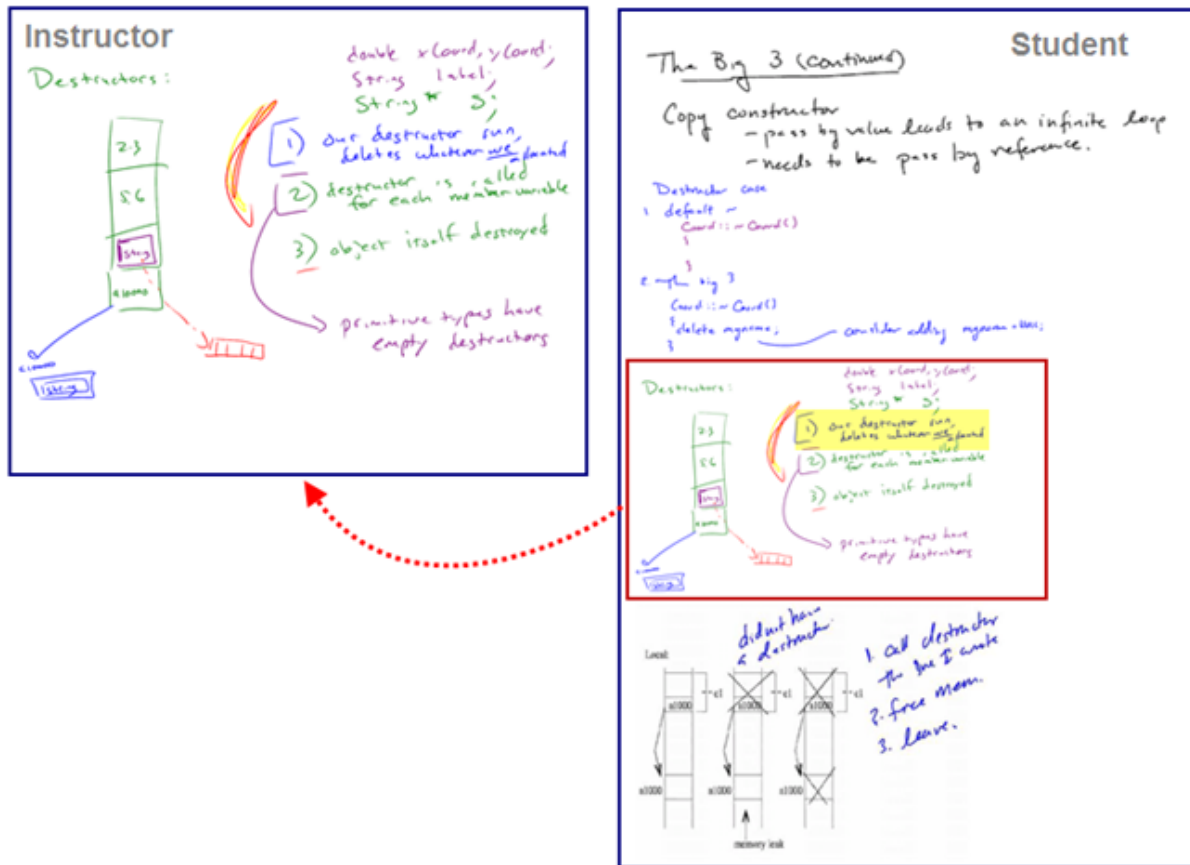 Instructor
Destructors:
double xCoord, yCoord;
String label;
String* S;
2.3
5.6
String
a1000
1) our destructor run,
deletes whatever we allocated
2) destructor is called
for each member variable
3) object itself destroyed
primitive types have
empty destructors
String
Student
The Big 3 (continued)
Copy constructor
- pass by value leads to an infinite loop
- needs to be pass by reference.
Destructor case
1. default ~
Coord::~Coord()
{
}
2. big 3
Coord::~Coord()
{
delete myname;
consider adding
}
Destructors:
double xCoord, yCoord;
String label;
String* S;
2.3
5.6
String
a1000
1) our destructor run,
deletes whatever we allocated
2) destructor is called
for each member variable
3) object itself destroyed
primitive types have
empty destructors
String
did not have
a destructor
Local:
c1
c1
c1
a1000
a1000
a1000
a1000
a1000
a1000
memory leak
1. call destructor
the one I wrote
2. free mem.
3. leave.